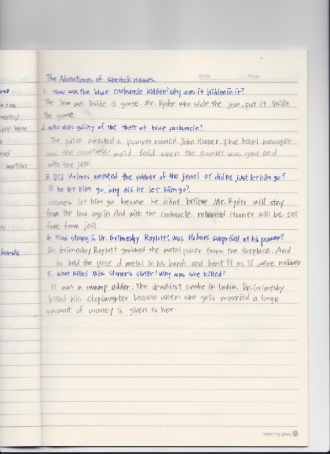 The Adventures of Sherlock Holmes.
1. How was the blue carbuncle hidden? Why was it hidden in it?
The Jem was inside is goose. Mr. Ryder who stole the Jem, put it inside
the goose
2. Who was guilty of the theft of blue carbuncle?
The police arrested a plumber named John Horner. The hotel manager
and the countess' maid said when the plumber was gone and
with the jem
3. Did Holmes arrested the robber of the jewel or did he just let him go?
If he let him go, why did he let him go?
Holmes let him go because he didn't believe Mr. Ryder will stay
from the law again And with the carbuncle returned Horner will be set
free from jail
4. How strong is Dr. Grimesby Roylott? Was Holmes surprised at his power?
Dr. Grimesby Roylott grabbed the metal poker from the fireplace. And
he held the piece of metal in his hands and bent it as if were rubber
5. What killed Miss Stoner's sister? Why was she killed?
It was a swamp adder. The deadliest snake in India. Dr. Grimesby
killed his stepdaughter because when she gets married a large
amount of money is given to her.